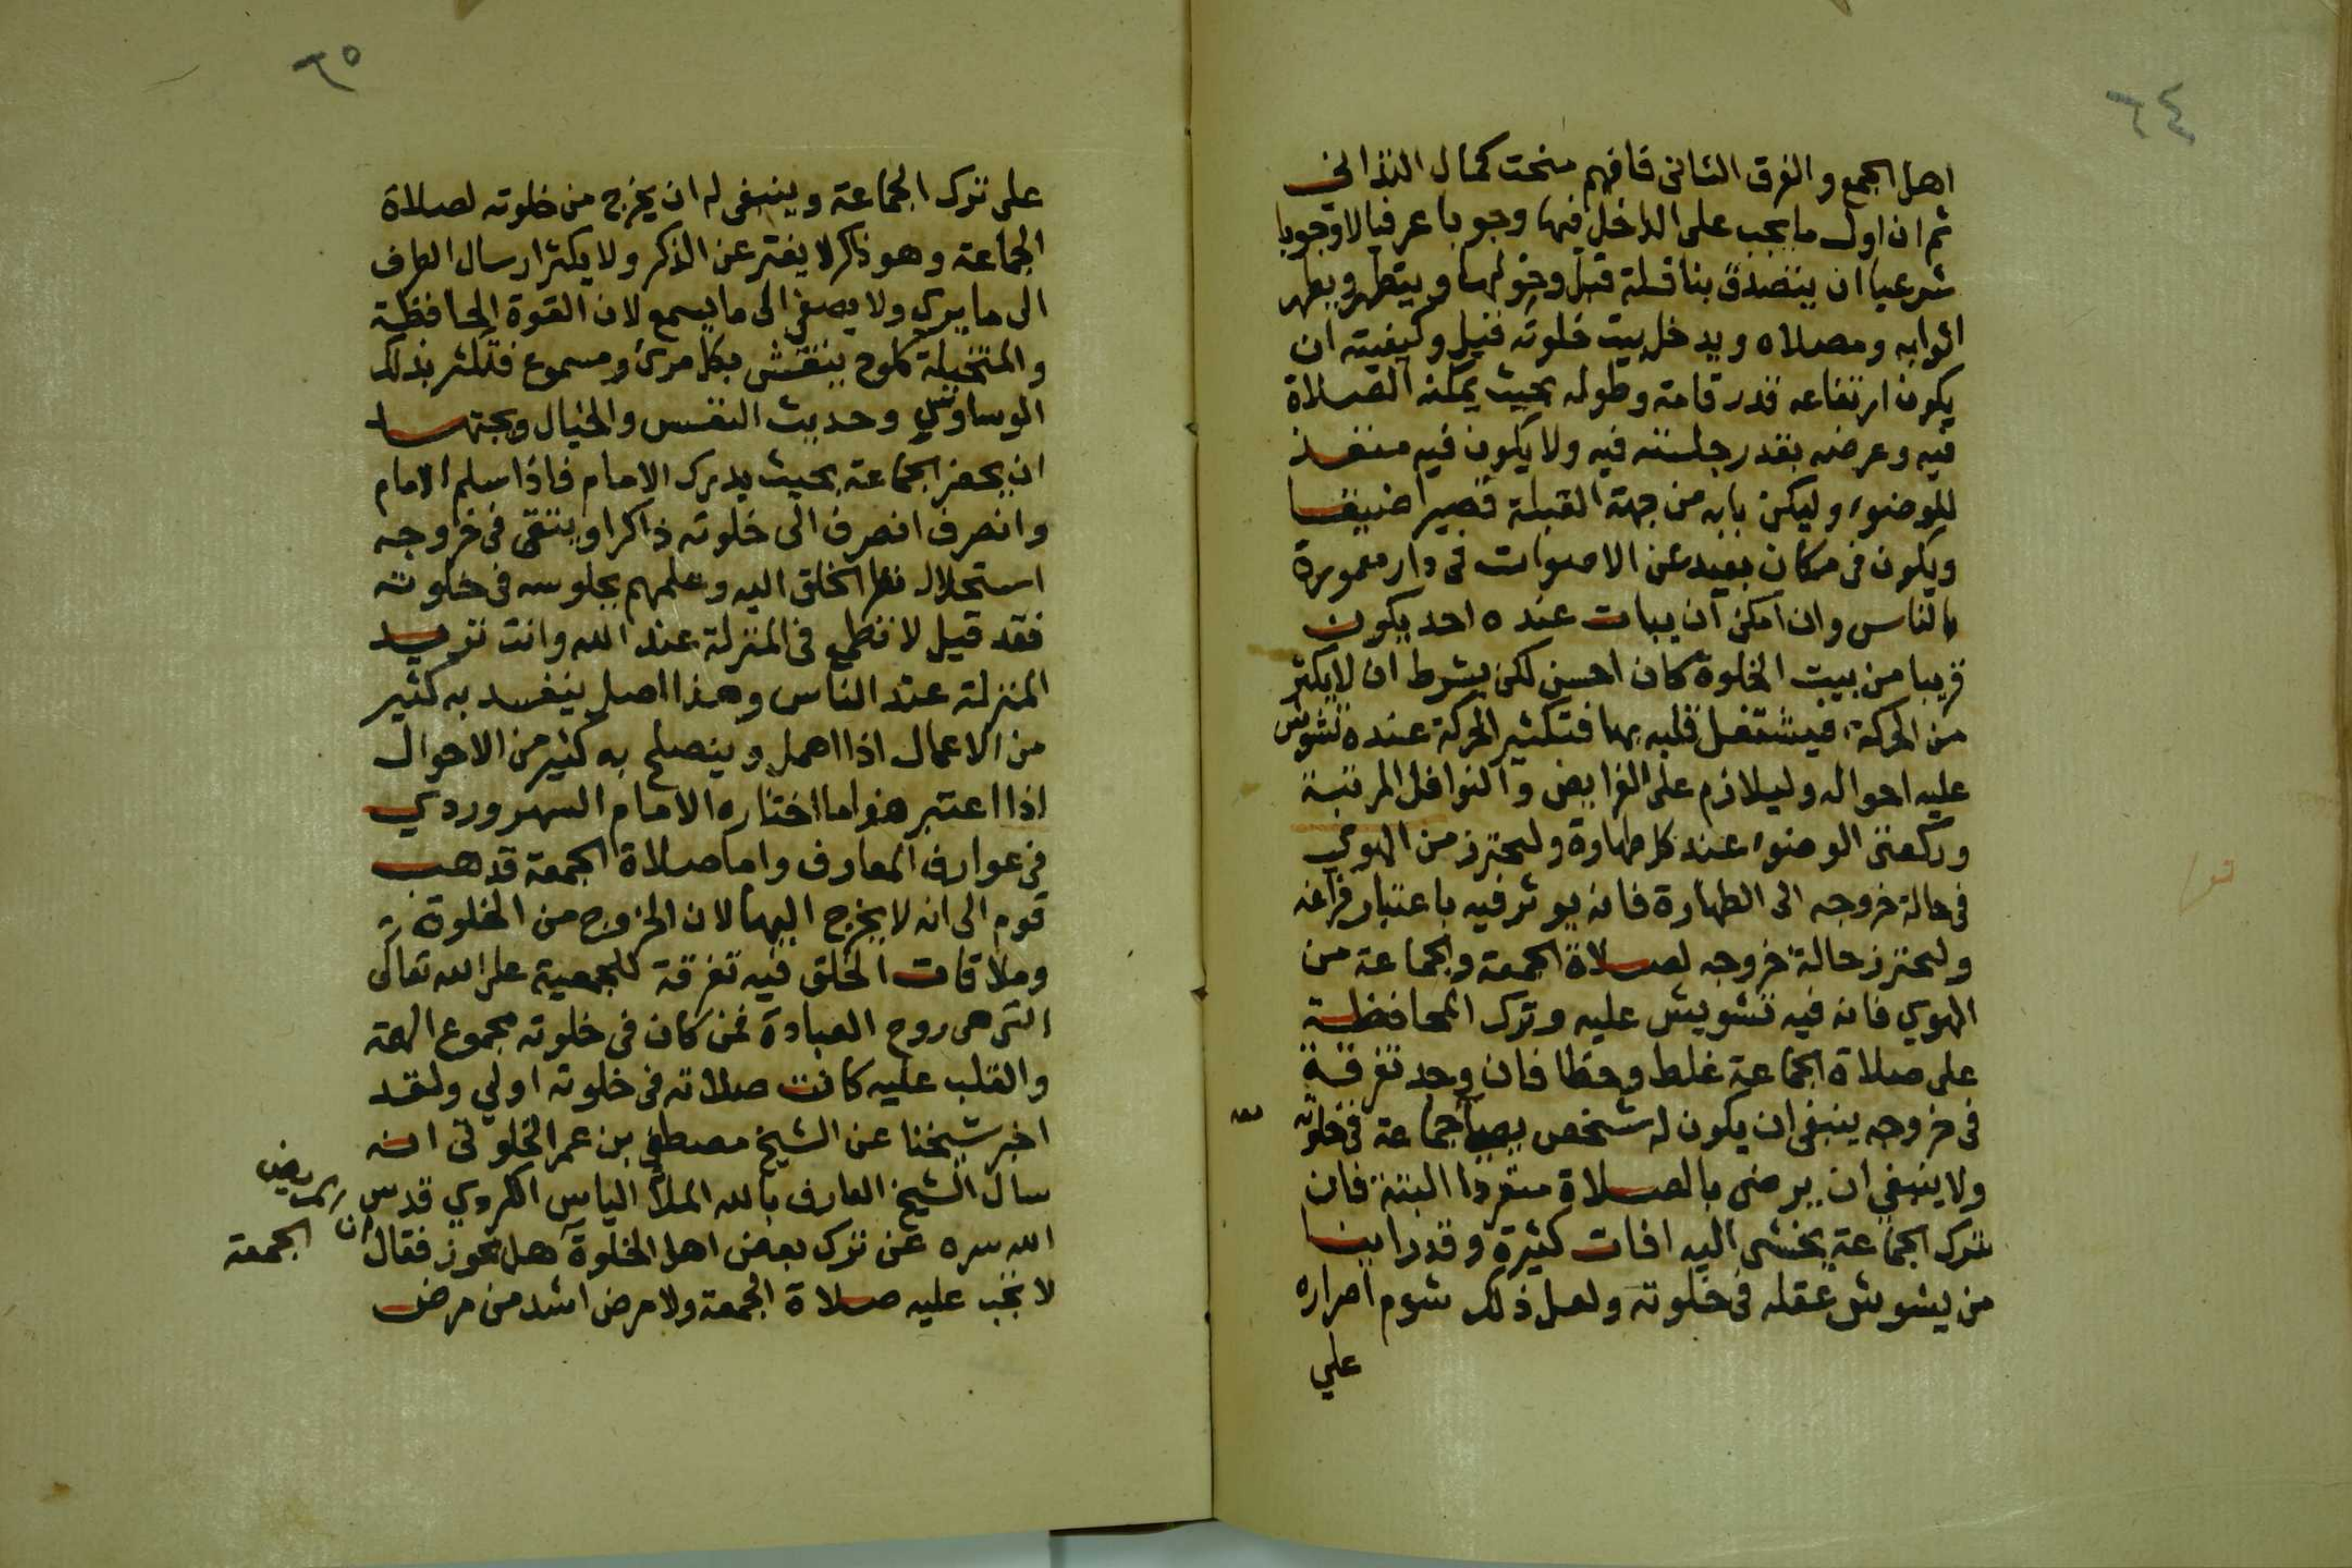 ٦٤
اهل الجمع والفرق الثانى فافهم منحت كمال التدانى
ثم ان اول ما يجب على الداخل فيها وجوبا عرفيا لا وجوبا
شرعيا ان يتصدق بنافلة قبل دخولها ويتطهر ويطهر
اثوابه ومصلاه ويدخل بيت خلوته قيل وكيفيته ان
يكون ارتفاعه قدر قامة وطوله بحيث يمكنه الصلاة
فيه وعرضه بقدر جلسته فيه ولا يكون فيه منفذ
للوضوء وليكن بابه من جهة القبلة قصيرا ضيقا
ويكون فى مكان بعيد عن الاصوات فى دار معمورة
بالناس وان امكن ان يبات عنده احد يكون
قريبا من بيت الخلوة كان احسن لكن بشرط ان لا يكثر
من الحركة فيشتغل قلبه بها فتكثير الحركة عنده تشوش
عليه احواله وليلازم على الفرايض والنوافل المرتبة
وركعتى الوضوء عند كل طهارة وليحترز من الهوي
فى حالة خروجه الى الطهارة فانه يوثر فيه باعتبار فراغه
وليحترز حالة خروجه لصلاة الجمعة والجماعة من
الهوي فانه فيه تشويش عليه وترك المحافظة
على صلاة الجماعة غلط وخطا فان وجد تفرقة
فى خروجه ينبغى ان يكون له شخص يصلي جماعة فى خلوته
ولا ينبغي ان يرضى بالصلاة منفردا البتة فان
بترك الجماعة يخشى اليه افات كثيرة وقد راينا
من يشوش عقله فى خلوته ولعل ذلك شوم اصراره
علي
٦٥
على ترك الجماعة وينبغى له ان يخرج من خلوته لصلاة
الجماعة وهو ذاكر لا يفتر عن الذكر ولا يكثر ارسال الطرف
الى ما يري ولا يصغي الى ما يسمع لان القوة الحافظة
والمتخيلة كلوح ينتقش بكل مرئ ومسموع فتكثر بذلك
الوساوس وحديث النفس والخيال ويجتهد
ان يحضر الجماعة بحيث يدرك الامام فاذا سلم الامام
وانصرف انصرف الى خلوته ذاكرا ويتقى فى خروجه
استجلال نظر الخلق اليه وعلمهم بجلوسه فى خلوته
فقد قيل لا تطمع فى المنزلة عند الله وانت تريد
المنزلة عند الناس وهذا اصل ينفسد به كثير
من الاعمال اذا اهمل وينصلح به كثير من الاحوال
اذا اعتبر هذا ما اختاره الامام السهروردي
فى عوارف المعارف واما صلاة الجمعة قد هب
قوم الى انه لا يخرج اليها لان الخروج من الخلوة
وملاقات الخلق فيه تفرقة للجمعية على الله تعالى
التى هى روح العبادة فمن كان فى خلوته مجموع الهمة
والقلب عليه كانت صلاته فى خلوته اولي ولقد
اخبر شيخنا عن الشيخ مصطفي بن عمر الخلوتى انه
سال الشيخ العارف بالله الملا الياس الكردي قدس
الله سره عن ترك بعض اهل الخلوة هل يجوز فقال
لا تجب عليه صلاة الجمعة ولا مرض اشد من مرض
الجمعة
ان المريض